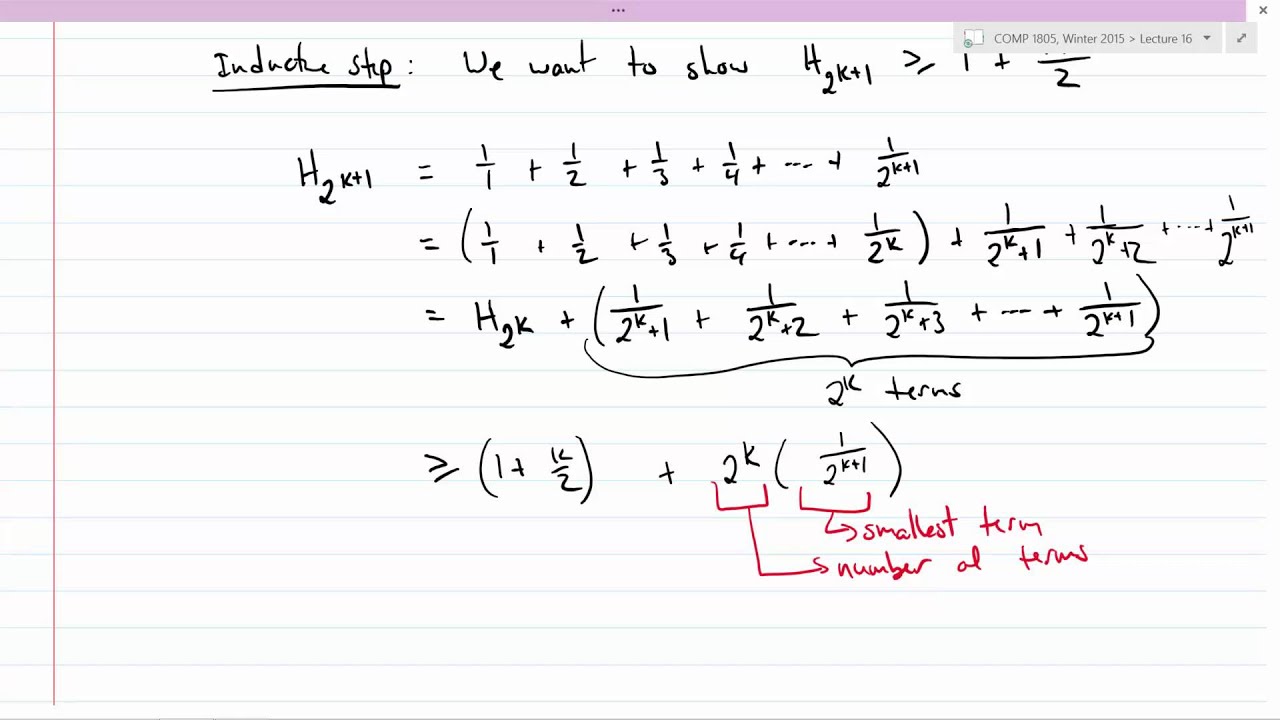 ...
COMP 1805, Winter 2015 > Lecture 16
Inductive step: We want to show H_{2^{k+1}} ≥ 1 + /2
H_{2^{k+1}} = 1/1 + 1/2 + 1/3 + 1/4 + ... + 1/2^{k+1}
= (1/1 + 1/2 + 1/3 + 1/4 + ... + 1/2^k) + 1/(2^k+1) + 1/(2^k+2) + ... + 1/2^{k+1}
= H_{2^k} + (1/(2^k+1) + 1/(2^k+2) + 1/(2^k+3) + ... + 1/2^{k+1})
2^k terms
≥ (1 + k/2) + 2^k (1/2^{k+1})
smallest term
number of terms